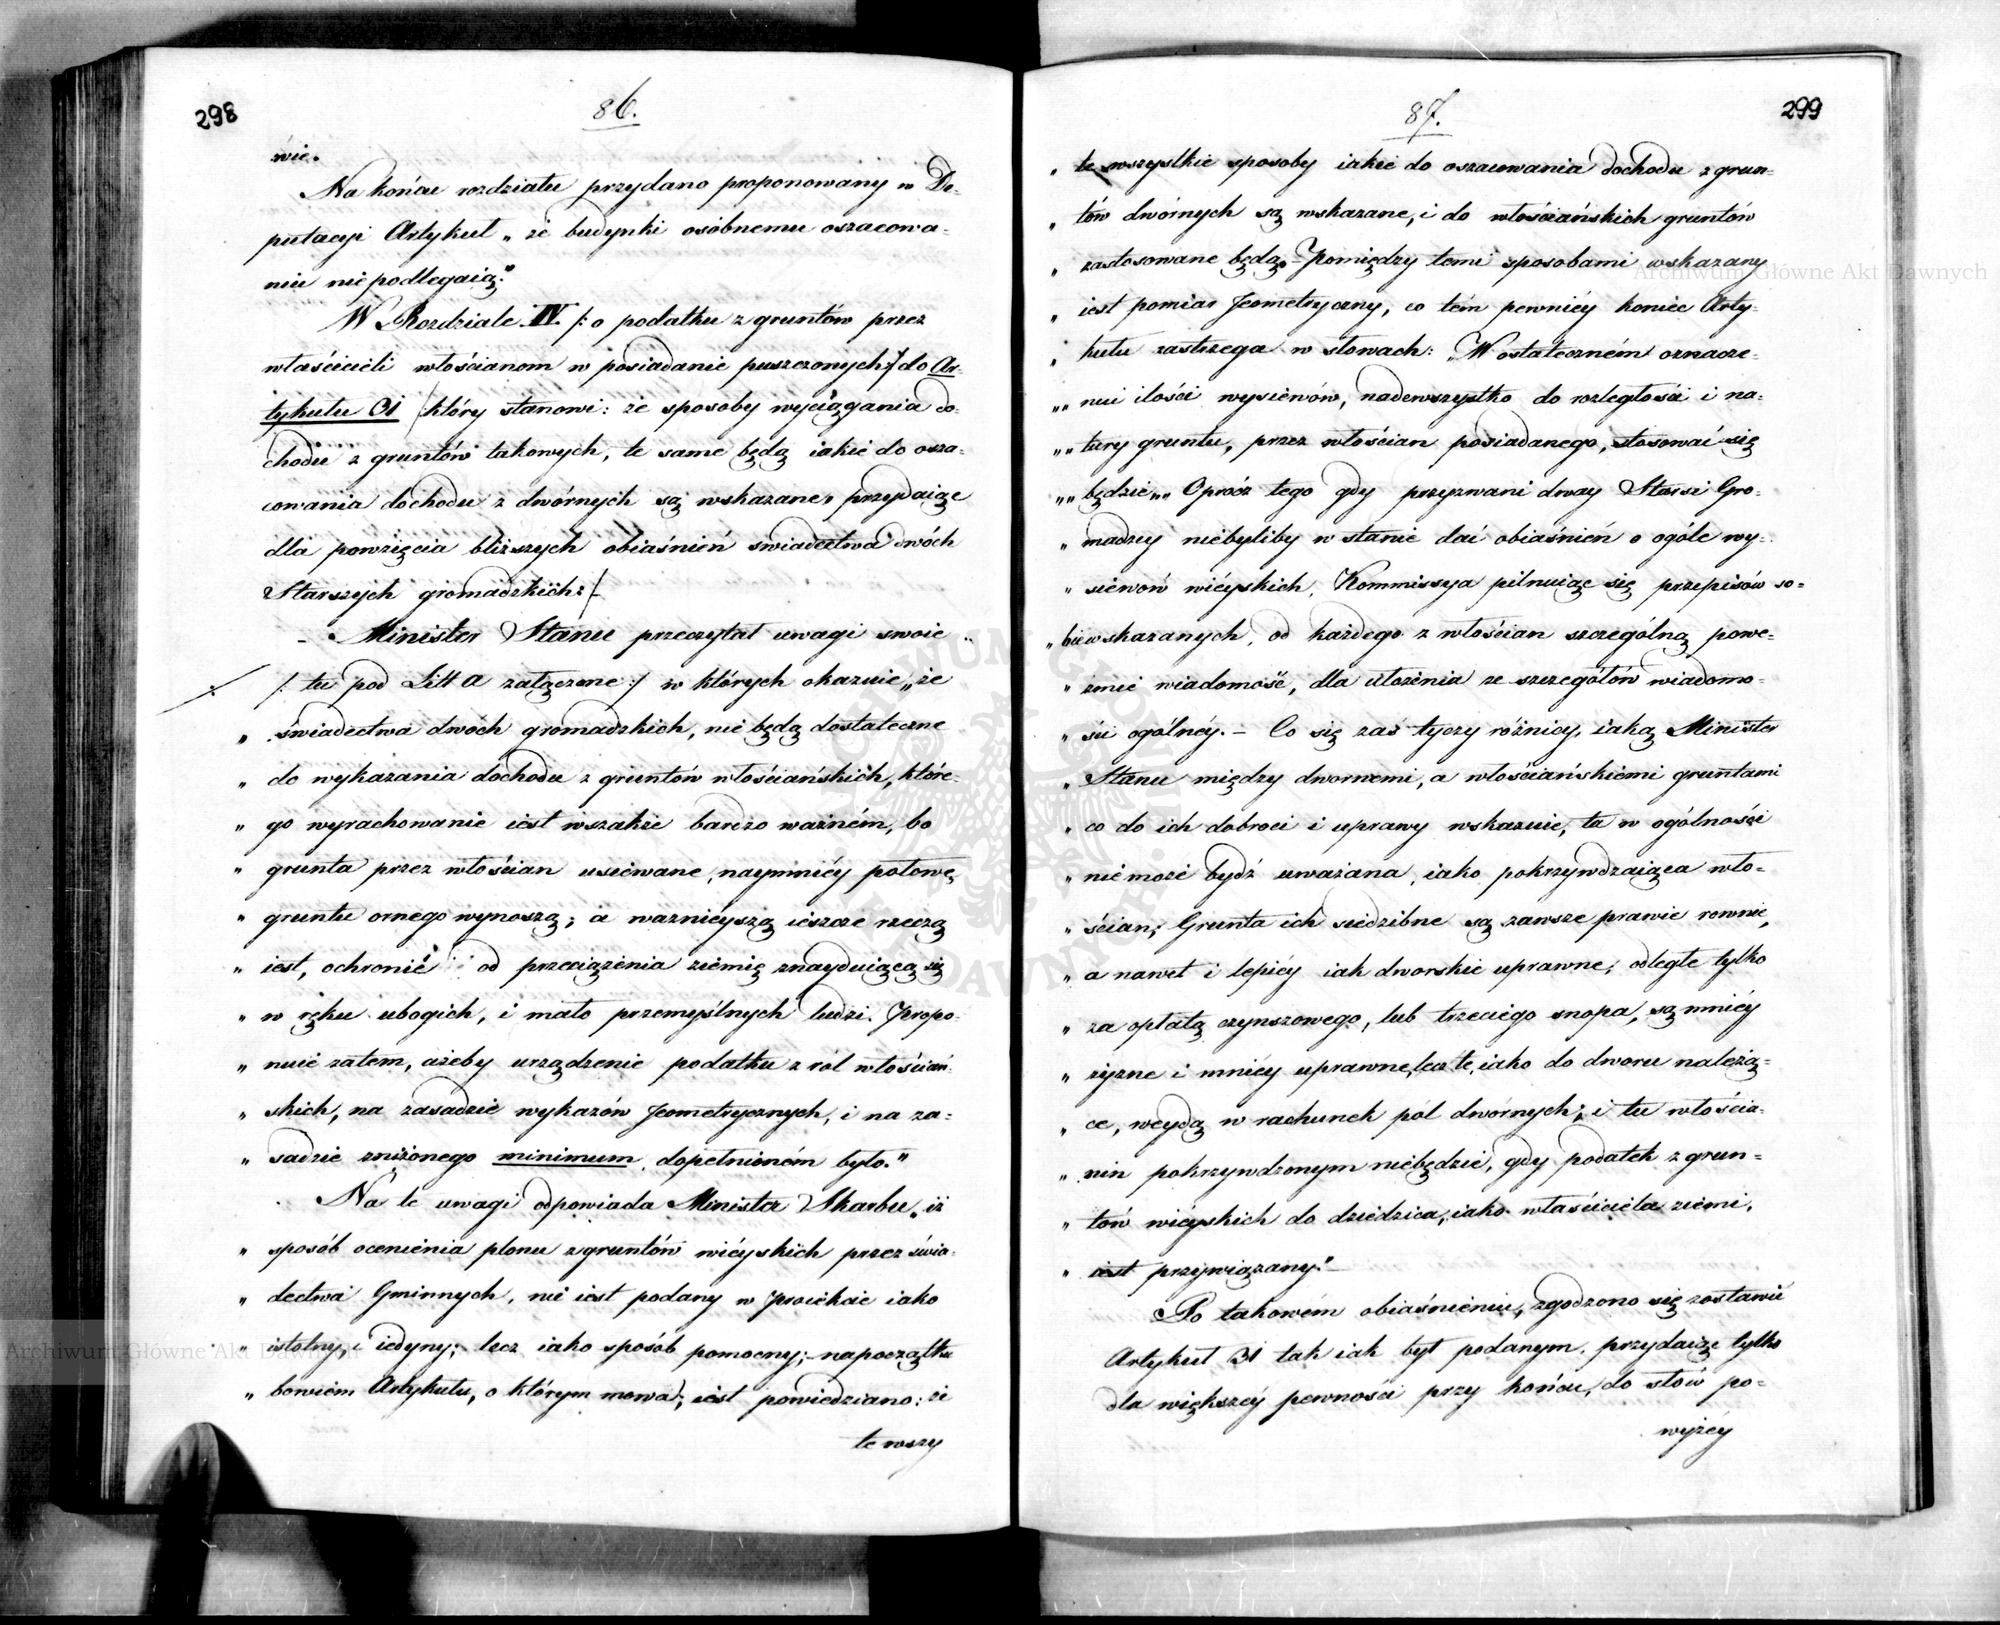 298
86.
wie.
Na końcu rozdziału przydano proponowany w De-
putacyi Artykuł „że budynki osobnemu oszacowa-
niu nie podlegaią."
W Rozdziale IV. /: o podatku z gruntów przez
właścicieli włościanom w posiadanie puszczonych :/ do Ar-
tykułu 31 /który stanowi: że sposoby wyciągania do-
chodu z gruntów takowych, te same będą iakie do osza-
cowania dochodu z dwórnych są wskazane, przydaiąc
dla powzięcia bliższych obiaśnień swiadectwa dwóch
Starszych gromadzkich:/
– Minister Stanu przeczytał uwagi swoie
/: tu pod Litt a załączone :/ w których okazuie „że
„ świadectwa dwóch gromadzkich, nie będą dostateczne
„ do wykazania dochodu z gruntów włościańskich, które-
„ go wyrachowanie iest wszakże bardzo ważném, bo
„ grunta przez włościan usiewane, naymniéy połowę
„ gruntu ornego wynoszą; a ważnieyszą ieszcze rzeczą
„ iest, ochronić od przeciążenia ziemię znayduiącą się
„ w ręku ubogich, i mało przemyślnych ludzi. Propo-
„ nuie zatem, ażeby urządzenie podatku z ról włościań-
„ skich, na zasadzie wykazów Jeometrycznych, i na za-
„ sadzie zniżonego minimum dopełnioném było."
Na te uwagi odpowiada Minister Skarbu „iż
„ sposób ocenienia plonu z gruntów wiéyskich przez świa-
„ dectwa Gminnych, nie iest podany w Proiekcie iako
„ istotny, i iedyny; lecz iako sposób pomocny; na początku
„ bowiém Artykułu, o którym mowa, iest powiedziano: że
te wszy
299
87.
„ te wszystkie sposoby iakie do oszacowania dochodu z grun-
„ tów dwórnych są wskazane, i do włościańskich gruntów
„ zastosowane będą. – Pomiędzy temi sposobami wskazany
„ iest pomiar Jeometryczny, co tém pewniéy koniec Arty-
„ kułu zastrzega w słowach: „W ostateczném oznacze-
„„ niu ilości wysiewów, nadewszystko do rozległości i na-
„„ tury gruntu, przez włościan posiadanego, stosować się
„„ będzie„„ Oprócz tego gdy przyzwani dway Starsi Gro-
„ madzcy niebyliby w stanie dać obiaśnień o ogóle wy-
„ siewów wiéyskich, Kommissya pilnuiąc się przepisów so-
„ bie wskazanych, od każdego z włościan szczególną powe-
„ źmie wiadomość, dla ułożenia ze szczegółów wiadomo-
„ ści ogólnéy. – Co się zaś tyczy różnicy, iaką Minister
„ Stanu między dwornemi, a włościańskiemi gruntami
„ co do ich dobroci i uprawy wskazuie, ta w ogólności
„ nie może bydź uważana, iako pokrzywdzaiąca wło-
„ ścian; Grunta ich siedzibne są zawsze prawie rownie,
„ a nawet i lepiéy iak dworskie uprawne; odległe tylko
„ za opłatą czynszowego, lub trzeciego snopa, są mniéy
„ żyzne i mniéy uprawne, lecz te, iako do dworu należą-
„ ce, weydą w rachunek pól dwórnych; i tu włościa-
„ nin pokrzywdzonym niebędzie, gdy podatek z grun-
„ tów wiéyskich do dziedzica, iako właściciela ziemi,
„ iest przywiązany."
Po takowém obiaśnieniu, zgodzono się zostawić
Artykuł 31 tak iak był podanym, przydaiąc tylko
dla większéy pewności przy końcu, do słów po-
wyżéy
Archiwum Główne Akt Dawnych
Archiwum Główne Akt Dawnych
ARCHIWUM GŁÓWNE AKT DAWNYCH